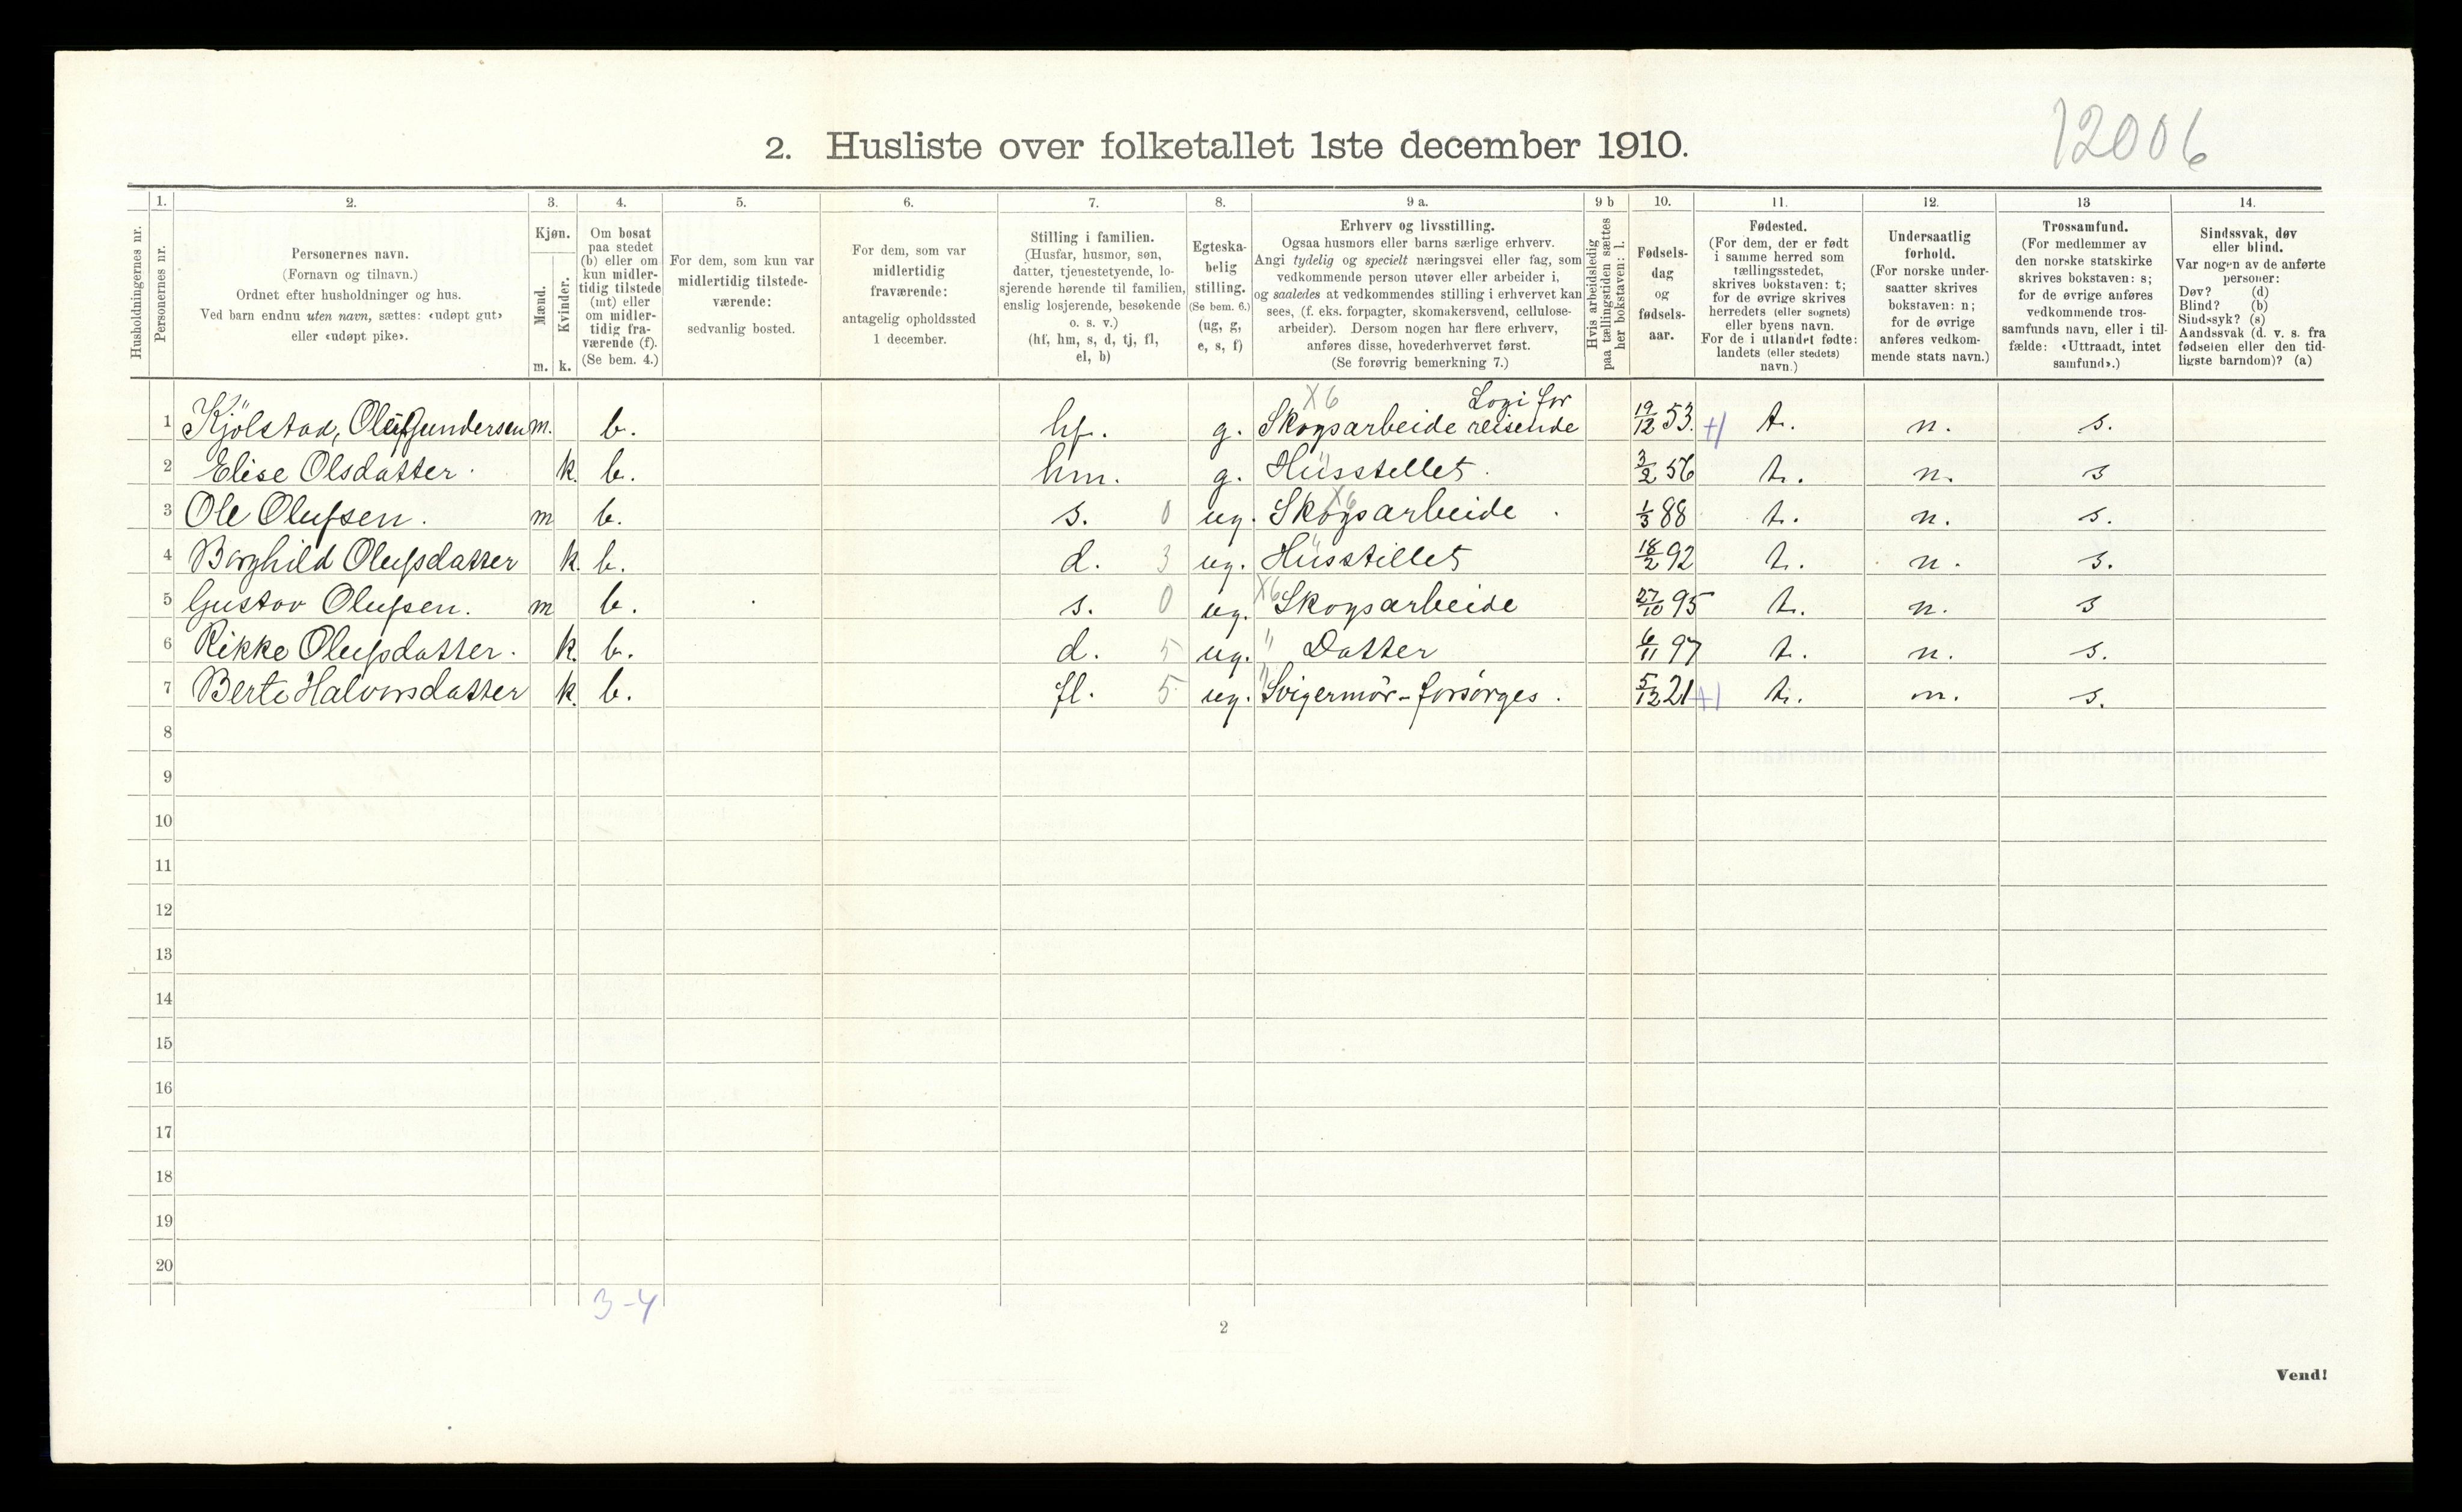 12006
2. Husliste over folketallet 1ste december 1910.
Husholdningernes nr.
1.
Personernes nr.
2.
Personernes navn.
(Fornavn og tilnavn.)
Ordnet efter husholdninger og hus.
Ved barn endnu uten navn, sættes: «udøpt gut»
eller «udøpt pike».
3.
Kjøn.
Mænd.
Kvinder.
m. k.
4.
Om bosat
paa stedet
(b) eller om
kun midler-
tidig tilstede
(mt) eller
om midler-
tidig fra-
værende (f).
(Se bem. 4.)
5.
For dem, som kun var
midlertidig tilstede-
værende:
sedvanlig bosted.
6.
For dem, som var
midlertidig
fraværende:
antagelig opholdssted
1 december.
7.
Stilling i familien.
(Husfar, husmor, søn,
datter, tjenestetyende, lo-
sjerende hørende til familien,
enslig losjerende, besøkende
o. s. v.)
(hf, hm, s, d, tj, fl,
el, b)
8.
Egteska-
belig
stilling.
(Se bem. 6.)
(ug, g,
e, s, f)
9 a.
Erhverv og livsstilling.
Ogsaa husmors eller barns særlige erhverv.
Angi tydelig og specielt næringsvei eller fag, som
vedkommende person utøver eller arbeider i,
og saaledes at vedkommendes stilling i erhvervet kan
sees, (f. eks. forpagter, skomakersvend, cellulose-
arbeider). Dersom nogen har flere erhverv,
anføres disse, hovederhvervet først.
(Se forøvrig bemerkning 7.)
9 b
Hvis arbeidsledig
paa tællingstiden sættes
her bokstaven: l.
10.
Fødsels-
dag
og
fødsels-
aar.
11.
Fødested.
(For dem, der er født
i samme herred som
tællingsstedet,
skrives bokstaven: t;
for de øvrige skrives
herredets (eller sognets)
eller byens navn.
For de i utlandet fødte:
landets (eller stedets)
navn.)
12.
Undersaatlig
forhold.
(For norske under-
saatter skrives
bokstaven: n;
for de øvrige
anføres vedkom-
mende stats navn.)
13
Trossamfund.
(For medlemmer av
den norske statskirke
skrives bokstaven: s;
for de øvrige anføres
vedkommende tros-
samfunds navn, eller i til-
fælde: «Uttraadt, intet
samfund».)
14.
Sindssvak, døv
eller blind.
Var nogen av de anførte
personer:
Døv? (d)
Blind? (b)
Sindssyk? (s)
Aandssvak (d. v. s. fra
fødselen eller den tid-
ligste barndom)? (a)
X6 Logi for
1 Kjölstad, Oluf Gundersen m. b. hf. g. Skogsarbeide reisende 19/12 53. +1 t. n. s.
2 Elise Olsdatter. k. b. hm. g. Hüsstellet. 3/2 56 t. n. s
3 Ole Olufsen. m b. s. 0 ug. X6 Skogsarbeide. 1/3 88 t. n. s.
4 Borghild Olufsdatter k. b. d. 3 ug. Hüsstillet 18/2 92 t. n. s.
5 Gustav Olufsen. m b. s. 0 ug. X6 Skogsarbeide 27/10 95 t. n. s
6 Rikke Olufsdatter. k. b. d. 5 ug. " Datter 6/11 97 t. n. s.
7 Berte Halvorsdatter k. b. fl. 5 ug. " Svigermör-forsörges. 5/12 21 +1 t. n. s.
8
9
10
11
12
13
14
15
16
17
18
19
20
3-4
2
Vend!